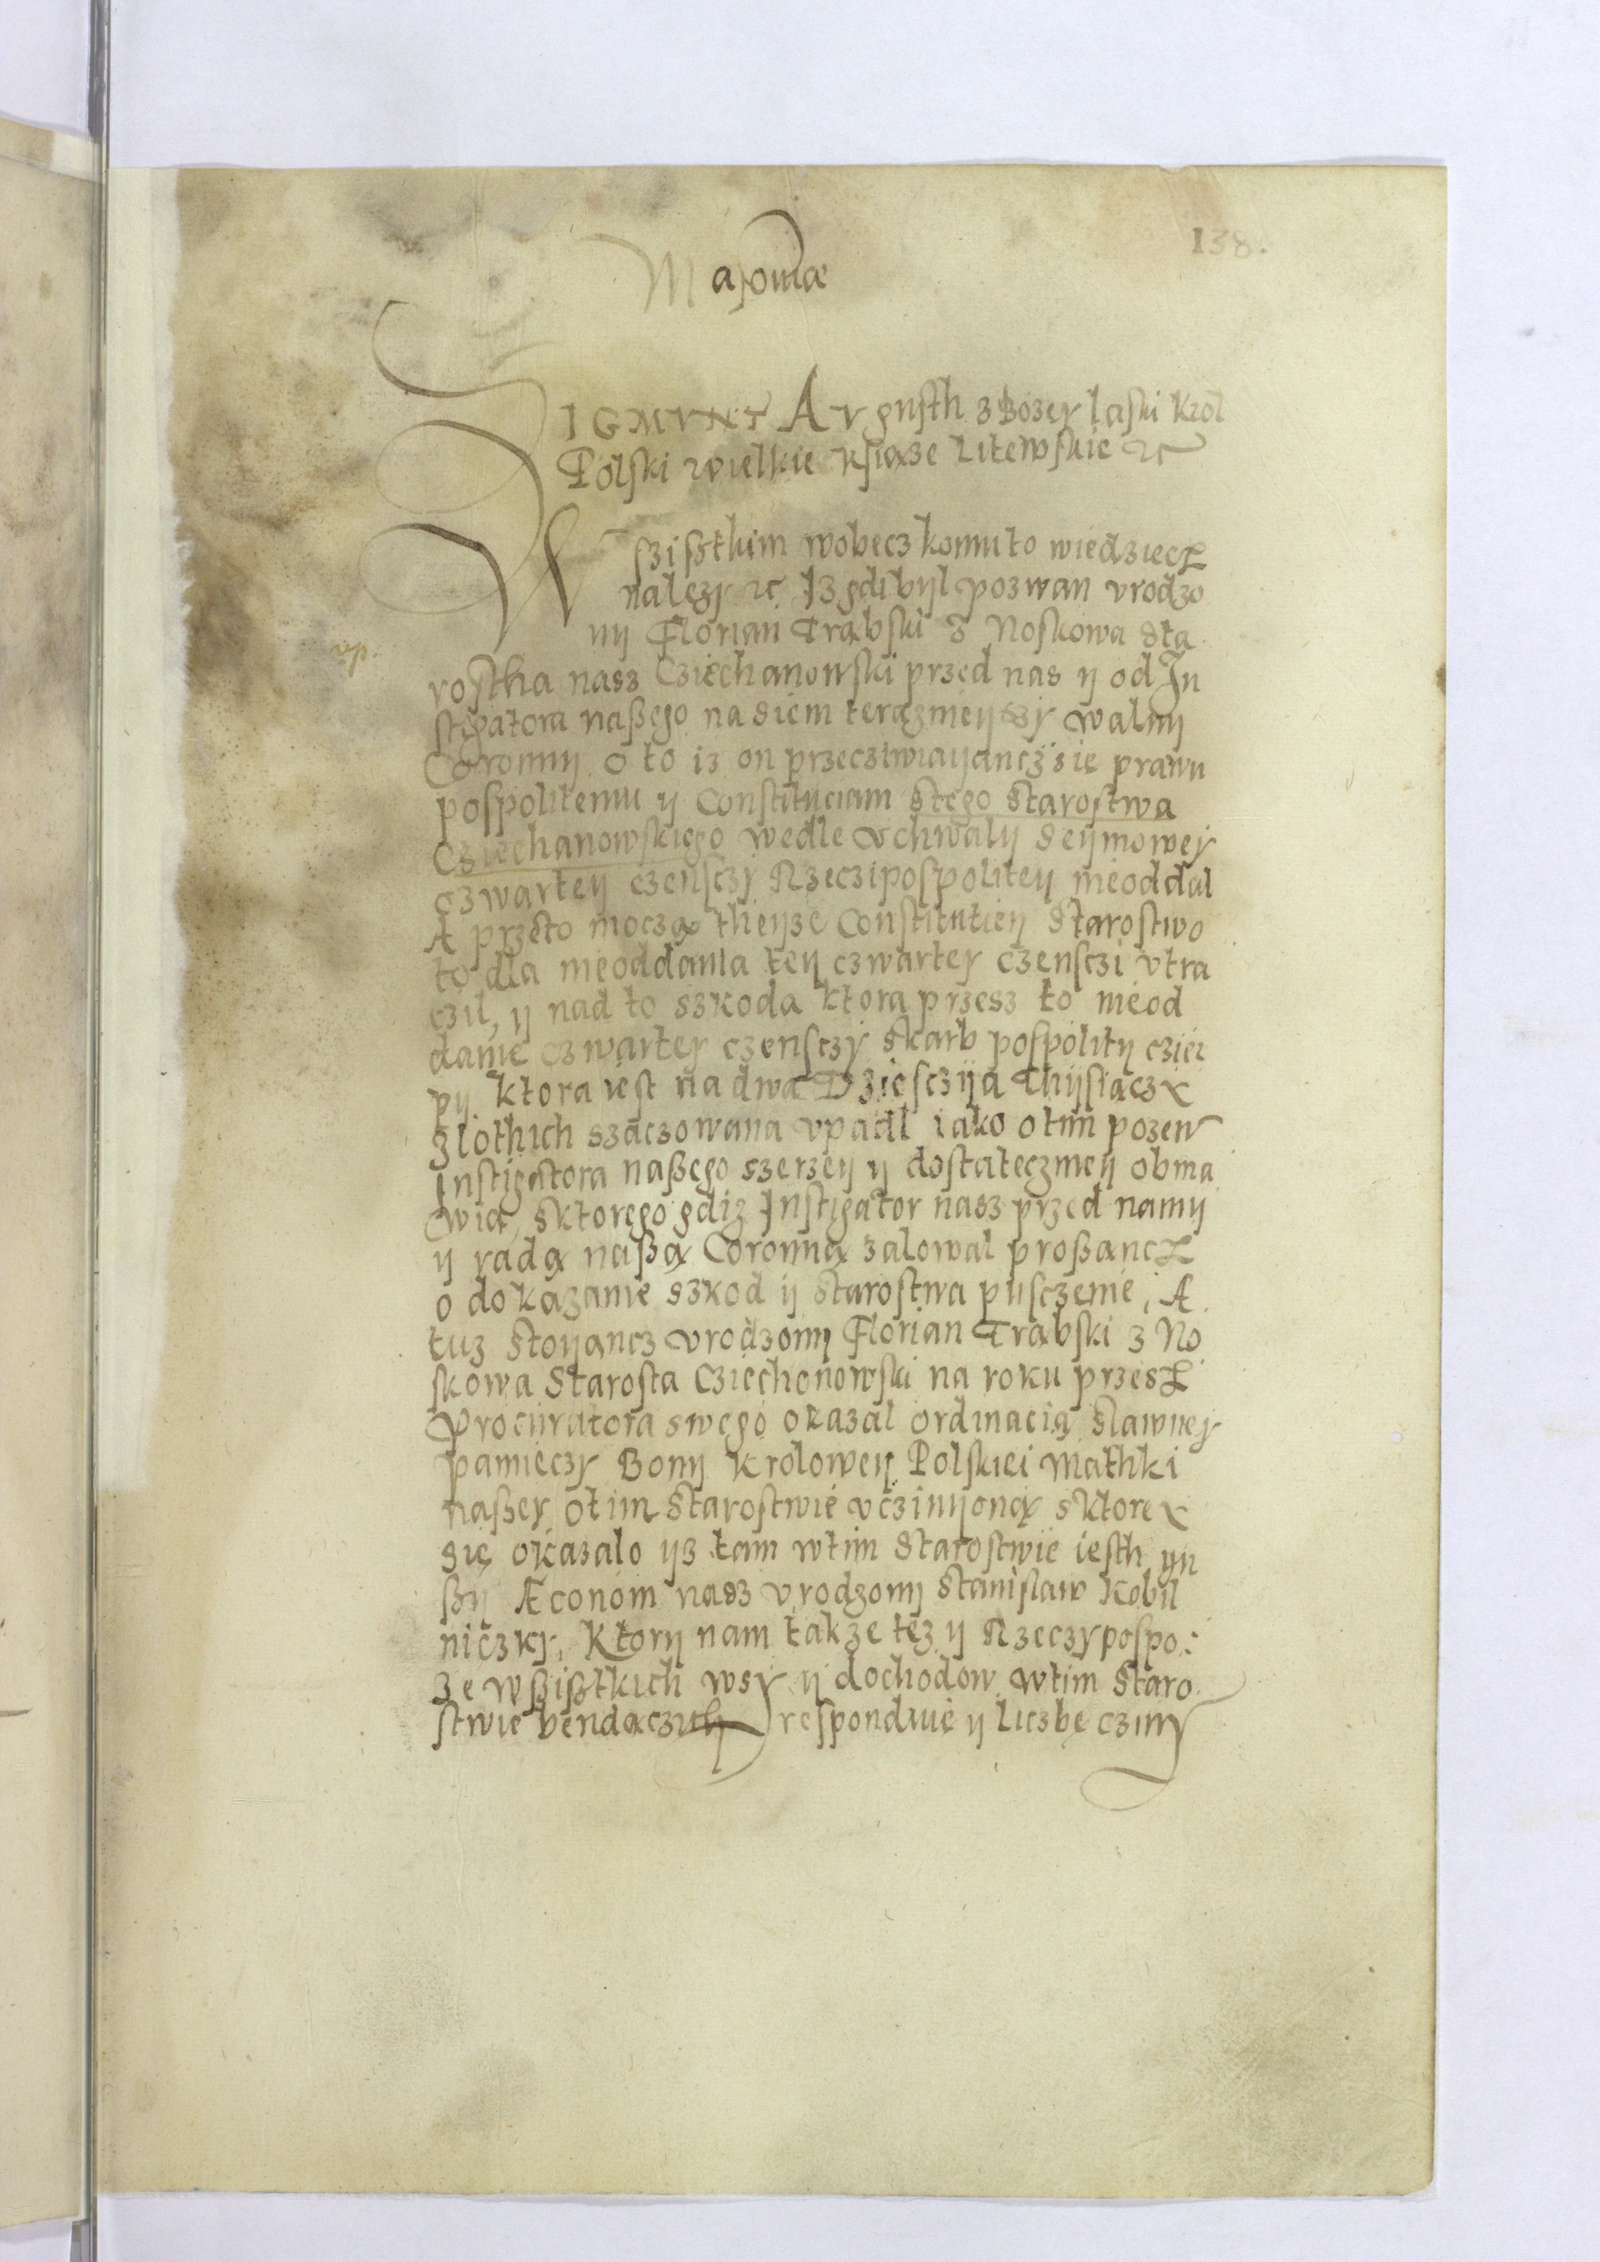 Masoviæ
138.
ZIGMVNT AVgusth z Bozey laski Krol
Polski wielkie Ksiąze Litewskie etc
Wszisztkim wobecz komu to wiedziecz
nalezy etc Iz gdi byl pozwan vrodzo
nij Florian Trąbski z Noskowa Sta
rostha nasz Cziechanowski przed nas ij od In
stigatora naßego na Siem terazmeijszy walnij
Coronnij, o to iz on przecziwiaijancz się prawu
pospolitemu ij Constituciam stego starostwa
Cziechanowskiego wedle vchwalij Seijmowey
czwarteij czensczy Rzeczipospoliteij nieoddal
A przeto moczą theijze Constitutieij Starostwo
to dla nieoddania teij czwartey czensczi vtra
czil, ij nad to szkoda ktora przesz to nieod
danie czwartey czensczy skarb pospolitij czier
pij ktora iest na dwa Dziesczija Thijsiącz
zlothich szaczowana vpadl iako o tim pozew
Instigatora naßego szerzeij ij dostateczmeij obma
wia, sktorego gdiz Instigator nasz przed namij
ij radą naßą Coronną zalowal proßancz
o dokazanie szkod ij starostwa pusczenie, A
tuz stoijancz vrodzonij Florian Trąbski z No
skowa Starosta Cziechonowski na roku przesz
Procuratora swego okazal ordinacią slawney
pamieczy Bonij Kroloweij Polskiei Mathki
naßey o tim Starostwie vczinijoną s ktorey
się okazalo ijz tam wtim Starostwie iesth ijn
ßij Æconom nasz vrodzonij Stanislaw Kobil
niczky, Ktorij nam takze tez ij Rzeczypospo:
ze wßißtkich wsy ij dochodow wtim Staro
stwie bendączich respondwie ij liczbę czinij